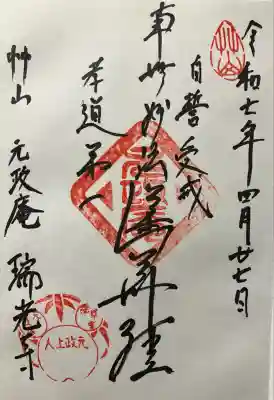 令和七年四月廿七日
自誓受戒
南無妙法蓮華経
孝道第一
艸山 元政庵 瑞光寺
元政上人